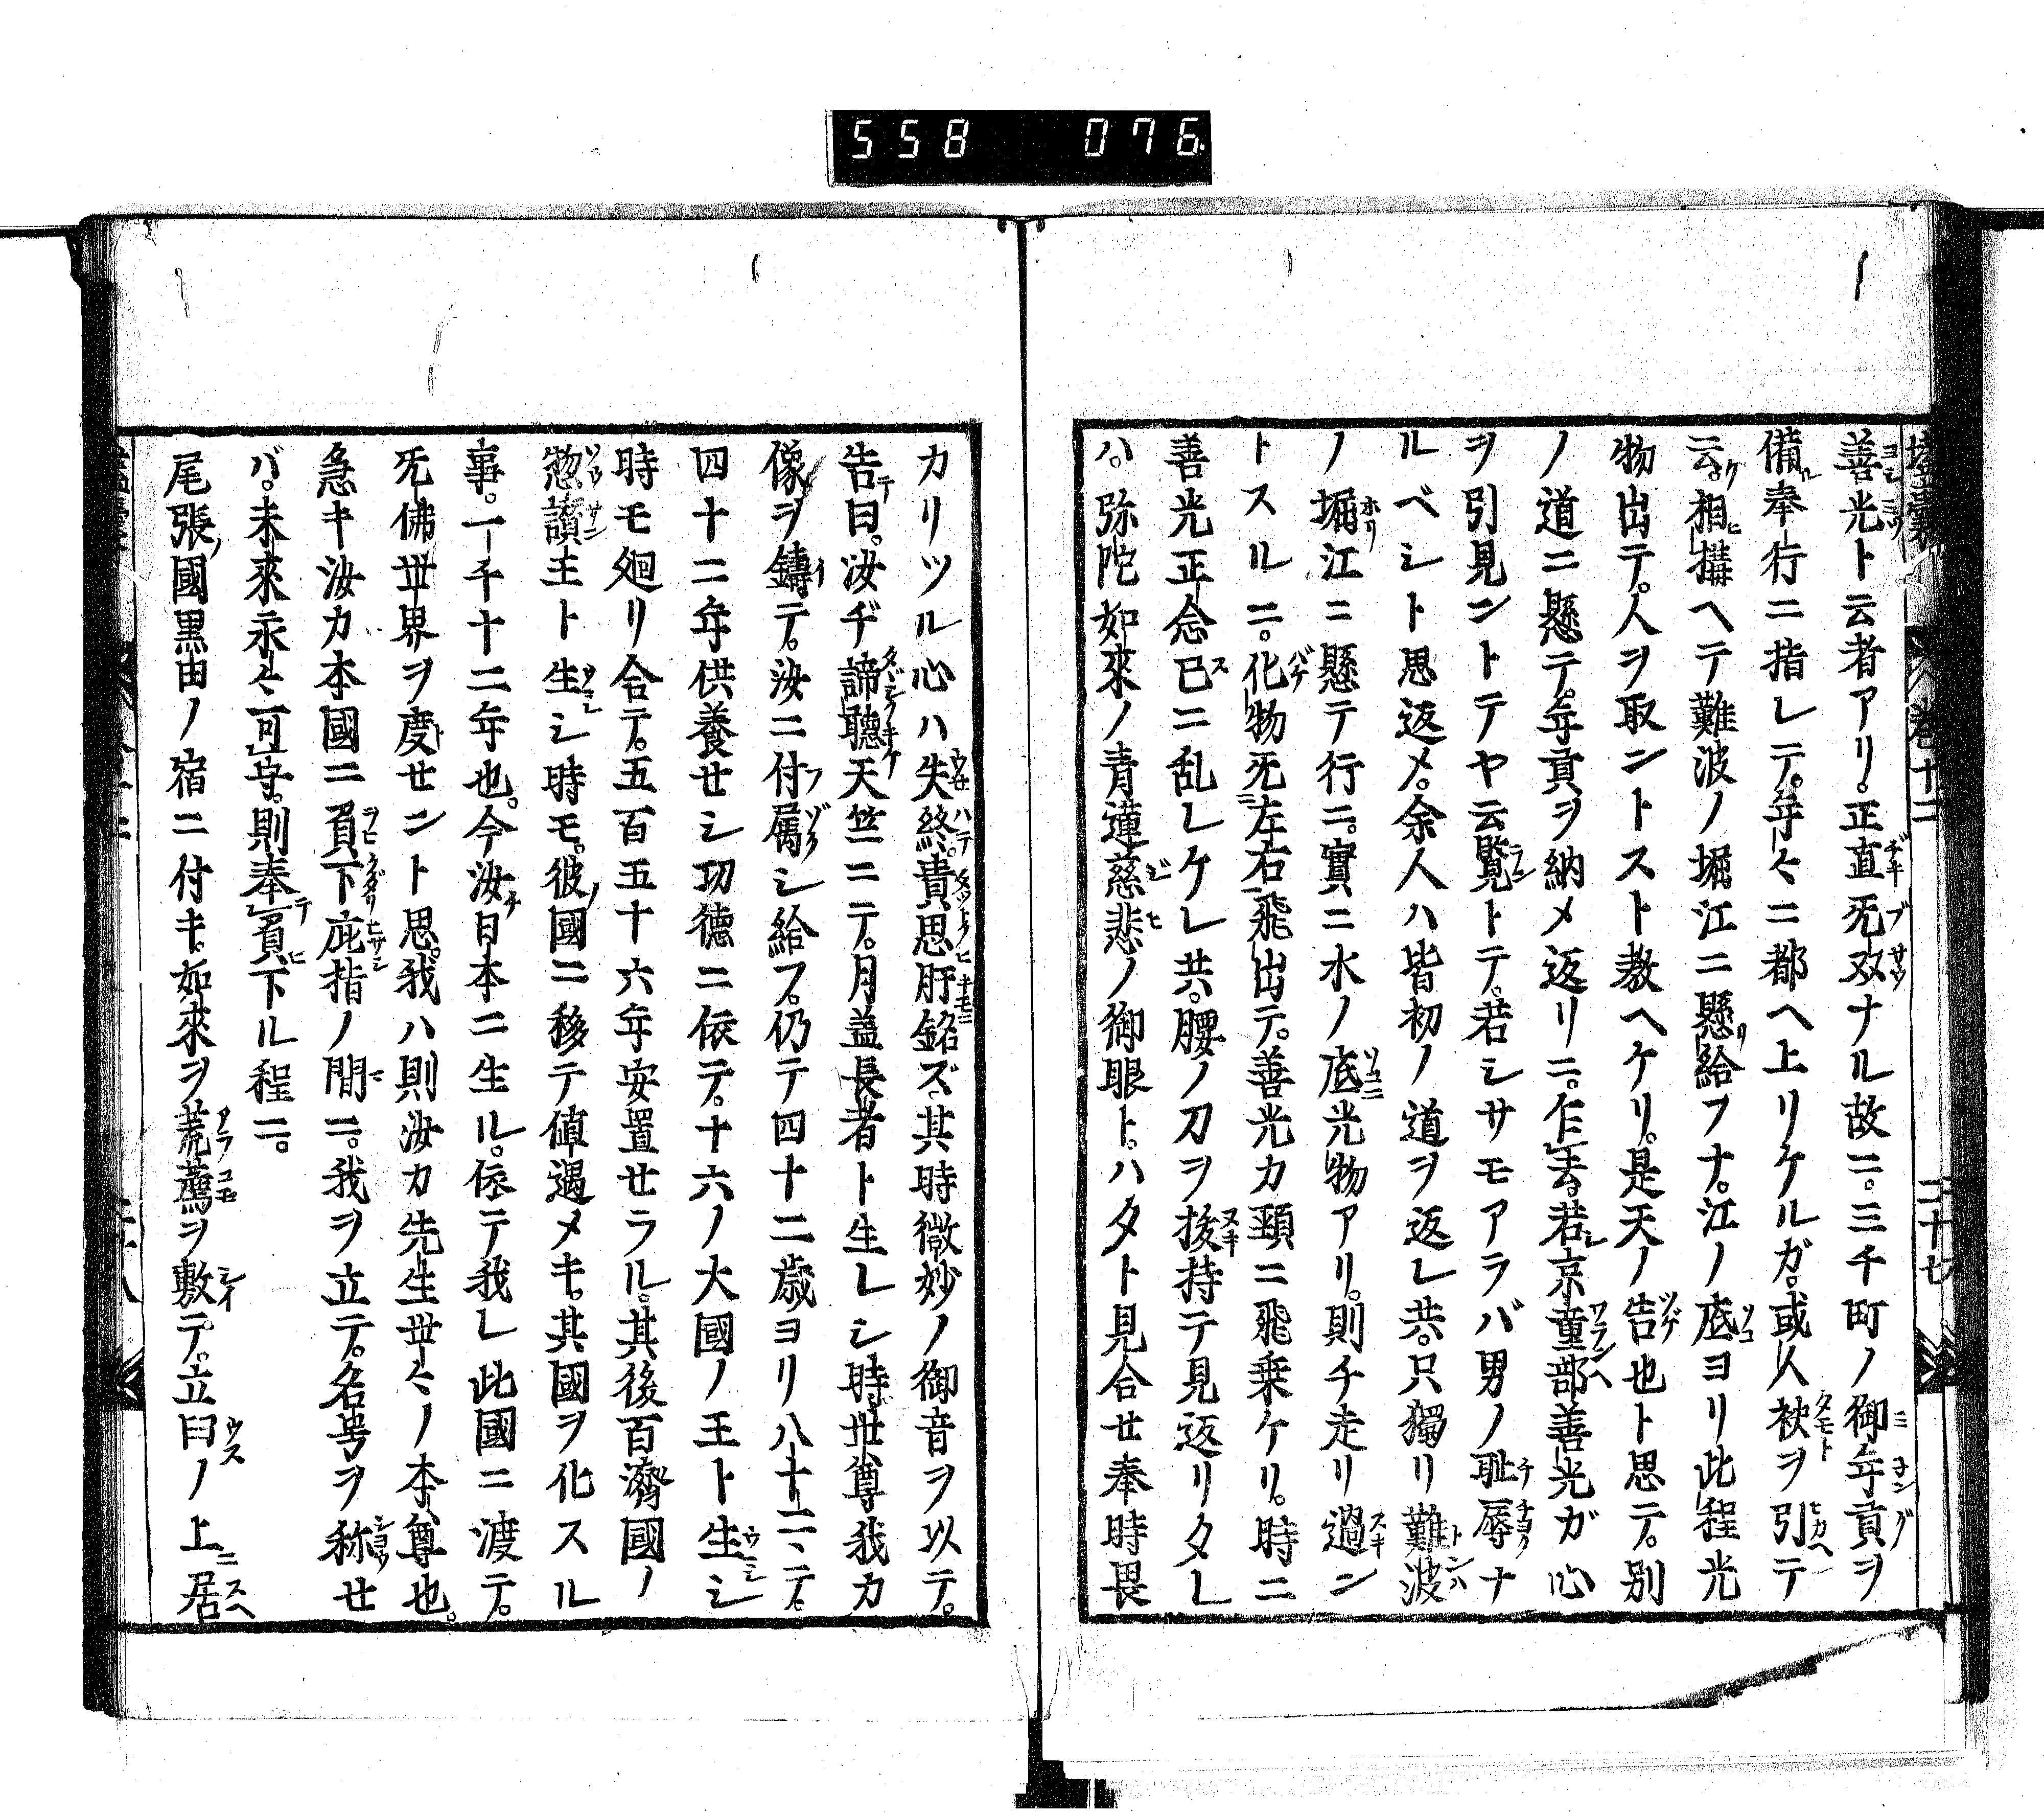 558 076
壒囊 巻十二 二十七
善光ト云者アリ。正直旡双ナル故ニ。三千町ノ御年貢ヲ
備奉行ニ指レテ。年々ニ都ヘ上リケルガ。或人袂ヲ引テ
云。相構ヘテ難波ノ堀江ニ懸給フナ。江ノ底ヨリ此程光
物出テ。人ヲ取ントスト教ヘケリ。是天ノ告也ト思テ。別
ノ道ニ懸テ。年貢ヲ納メ返リニ。乍去。若京童部善光ガ心
ヲ引見ントテヤ云覧トテ。若シサモアラバ男ノ耻辱ナ
ルベシト思返メ。余人ハ皆初ノ道ヲ返レ共。只獨リ難波
ノ堀江ニ懸テ行ニ。實ニ水ノ底光物アリ。則チ走リ過ン
トスルニ。化物旡左右飛出テ。善光カ頸ニ飛乗ケリ。時ニ
善光正念已ニ乱レケレ共。腰ノ刀ヲ抜持テ見返リタレ
ハ。弥陀如來ノ青蓮慈悲ノ御眼ト。ハタト見合世奉時畏
カリツル心ハ失終。貴思肝銘ズ。其時微妙ノ御音ヲ以テ。
告曰。汝ヂ諦聽天竺ニテ。月盖長者ト生レシ時世尊我カ
像ヲ鑄テ。汝ニ付属シ給フ。仍テ四十二歳ヨリ八十二ニテ。
四十二年供養せシ功徳ニ依テ。十六ノ大國ノ王ト生シ
時モ廻リ合テ。五百五十六年安置せラル。其後百濟國ノ
惣讃主ト生シ時モ。彼國ニ移テ値遇メキ。其國ヲ化スル
事。一千十二年也。今汝日本ニ生ル。依テ我レ此國ニ渡テ。
旡佛世界ヲ度せント思。我ハ則汝カ先生世々ノ本尊也。
急キ汝カ本國ニ負下庇指ノ間ニ。我ヲ立テ。名号ヲ称せ
バ。未來永々可守。則奉負下ル程ニ。
尾張國黒由ノ宿ニ付キ。如來ヲ荒薦ヲ敷テ。立臼ノ上居